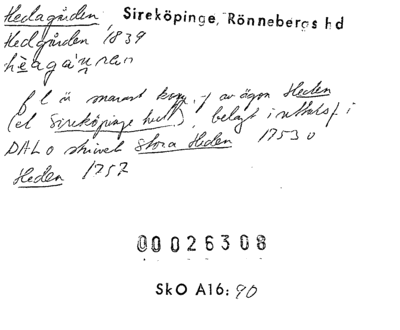 Hedagården, Sireköpinge, Rönnebergs hd
Hedgården 1839
hèagá'u̯ren
f l är snarast av ägon Heden
(el Sireköpinge hed), belagt i uttalsf i
DALo skrivet Stora Heden 1753 o
Heden 1757
00026308
SkO A16: 90